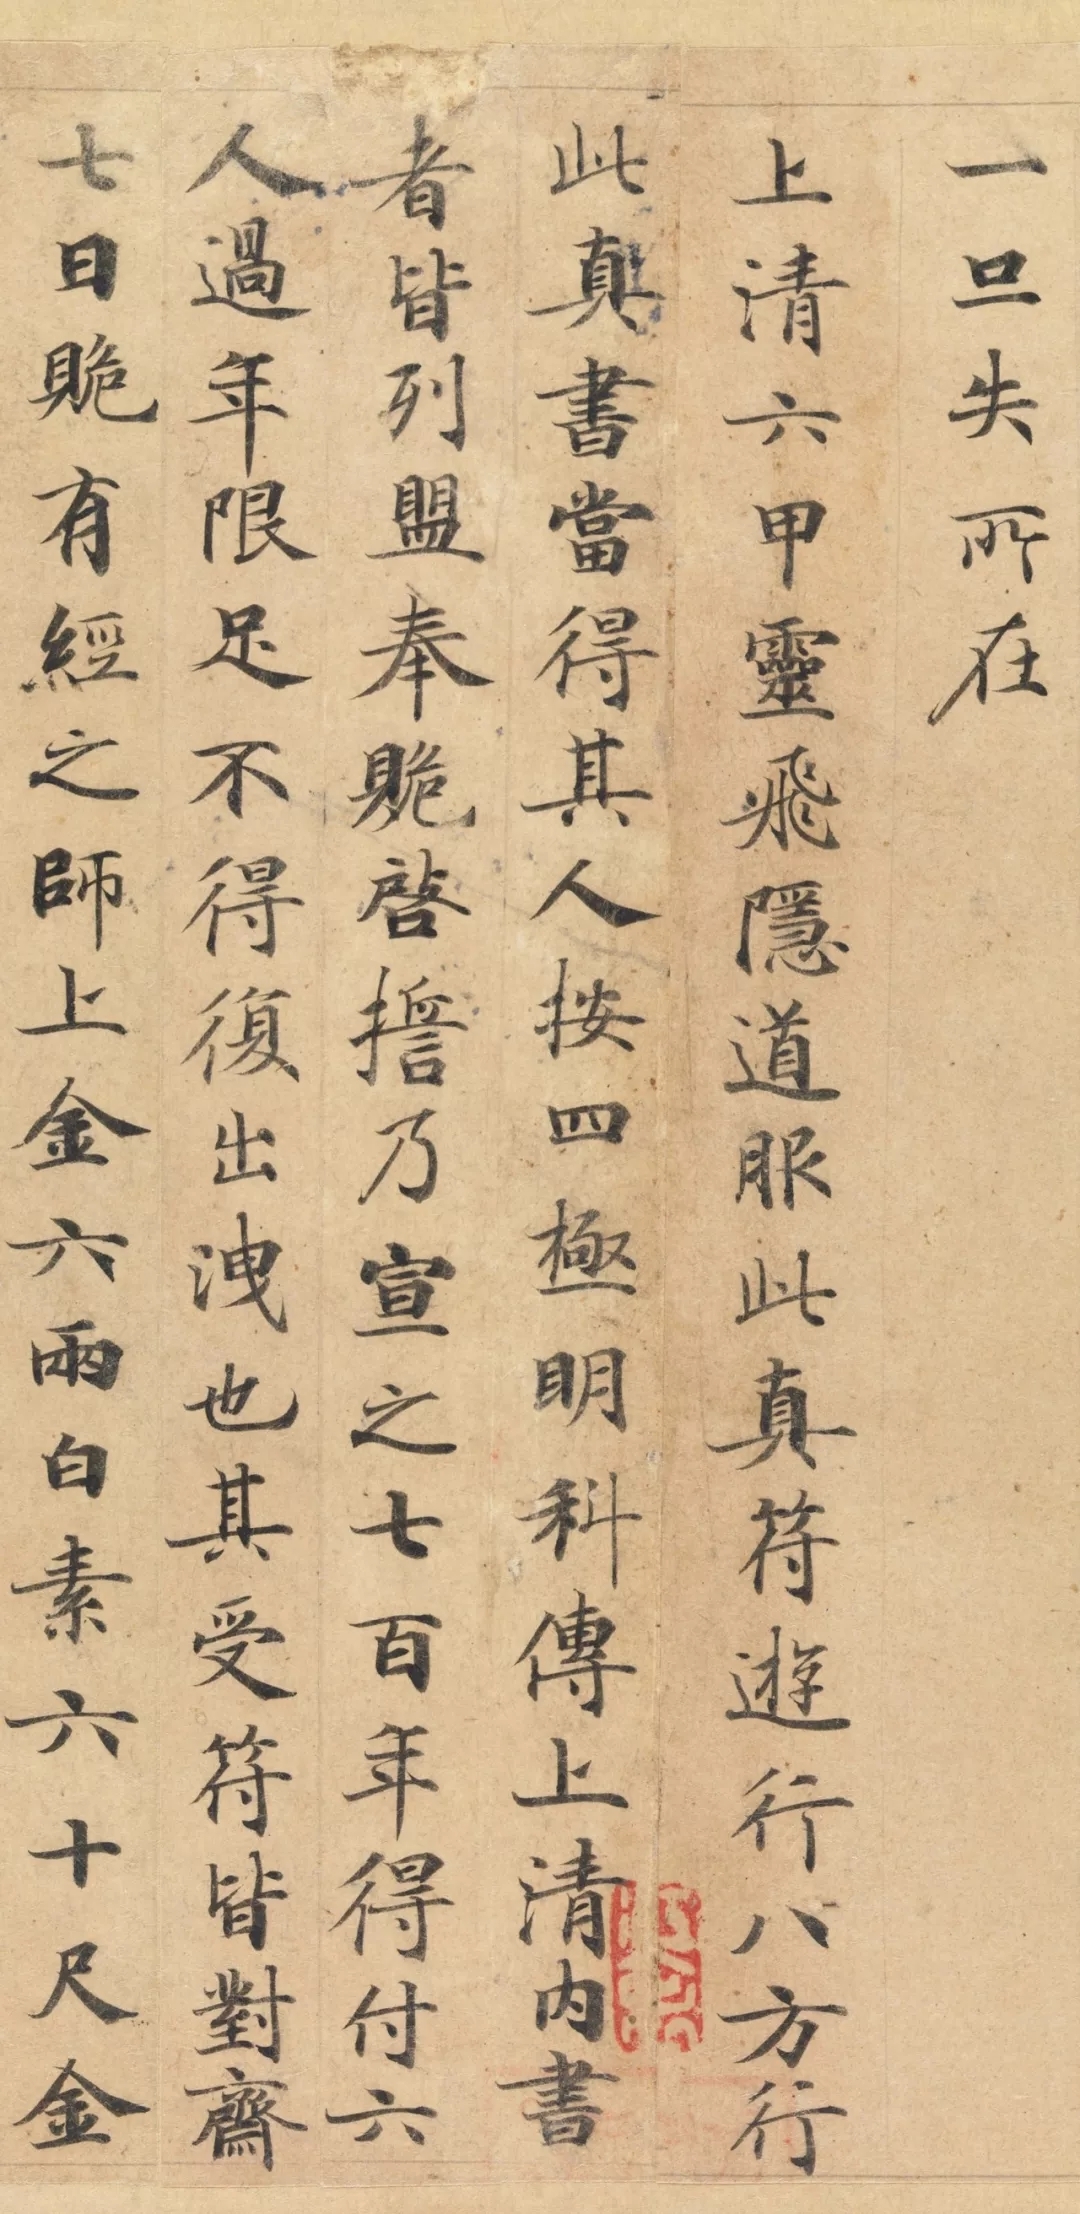 一旦失所在
上清六甲靈飛隱道服此真符遊行八方行
此真書當得其人按四極明科傳上清內書
者皆列盟奉貹啓擔乃宣之七百年得付六
人過年限足不得復出洩也其受符皆對齋
七日貹有經之師上金六兩白素六十尺金